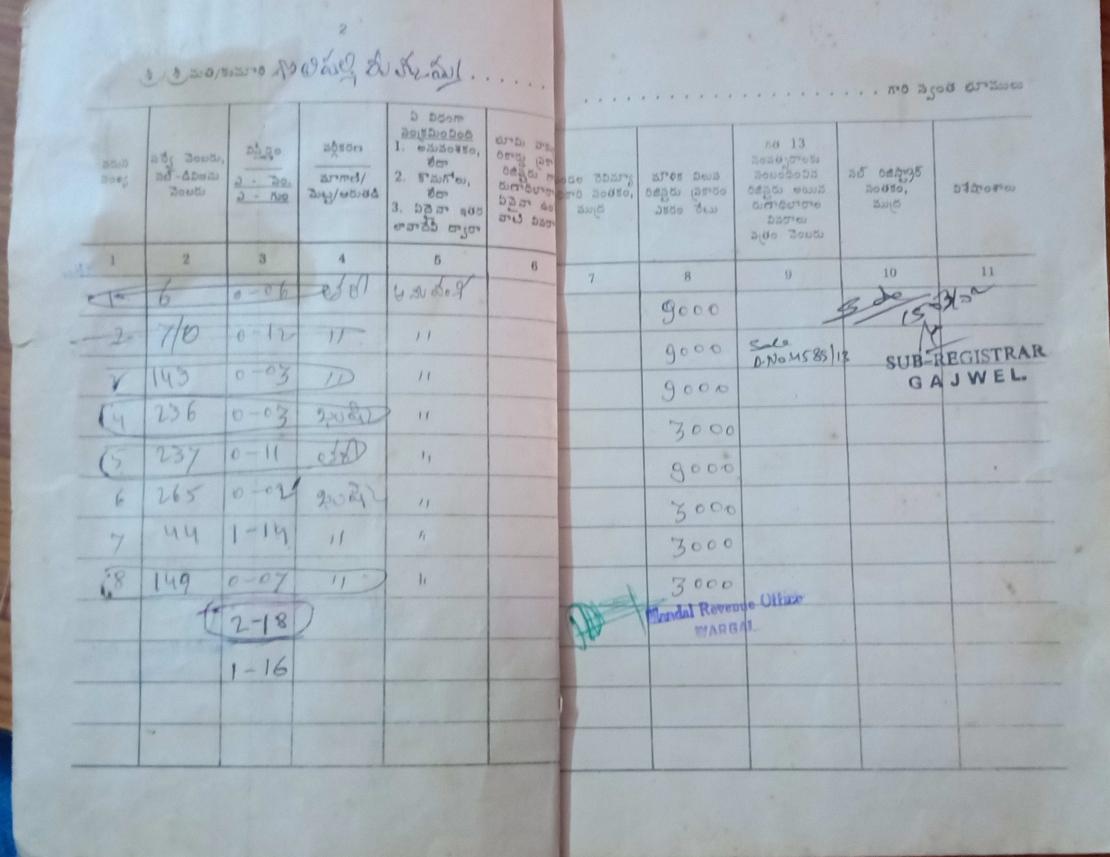 2
శ్రీ శ్రీమతి/కుమారి
గారి స్వంత భూములు
వరుస సంఖ్య
సర్వే నెంబరు, సబ్-డివిజను నెంబరు
విస్తీర్ణం
ఎ - సెం.
ఎ - గుం.
వర్గీకరణ
మాగాణి/మెట్ట/ఆరుతడి
ఏ విధంగా సంక్రమించింది
1. అనువంశికం, లేదా
2. కొనుగోలు, లేదా
3. ఏదైనా ఇతర లావాదేవీ ద్వారా
మండల రెవిన్యూ
సంతకం, ముద్ర
మార్కె విలువ రిజిష్టరు ప్రకారం ఎకరం రేటు
గత 13 సంవత్సరాలకు సంబంధించిన రిజిష్టరు అయిన ఋణాధిభారాల వివరాలు పత్రం నెంబరు
సబ్ రిజిష్ట్రార్ సంతకం, ముద్ర
విశేషాంశాలు
1 2 3 4 5 6 7 8 9 10 11
6 0-06 9000
2 7/ 0-12 " " 9000 Sale D.No 4585/12
143 0-03 " " 9000
4 236 0-03 " 3000
5 237 0-11 " 9000
6 265 0-02 " 3000
7 44 1-14 " " 3000
8 149 0-07 " " 3000
2-18
1-16
SUB-REGISTRAR
GAJWEL.
Mandal Revenue Office
WARGAL